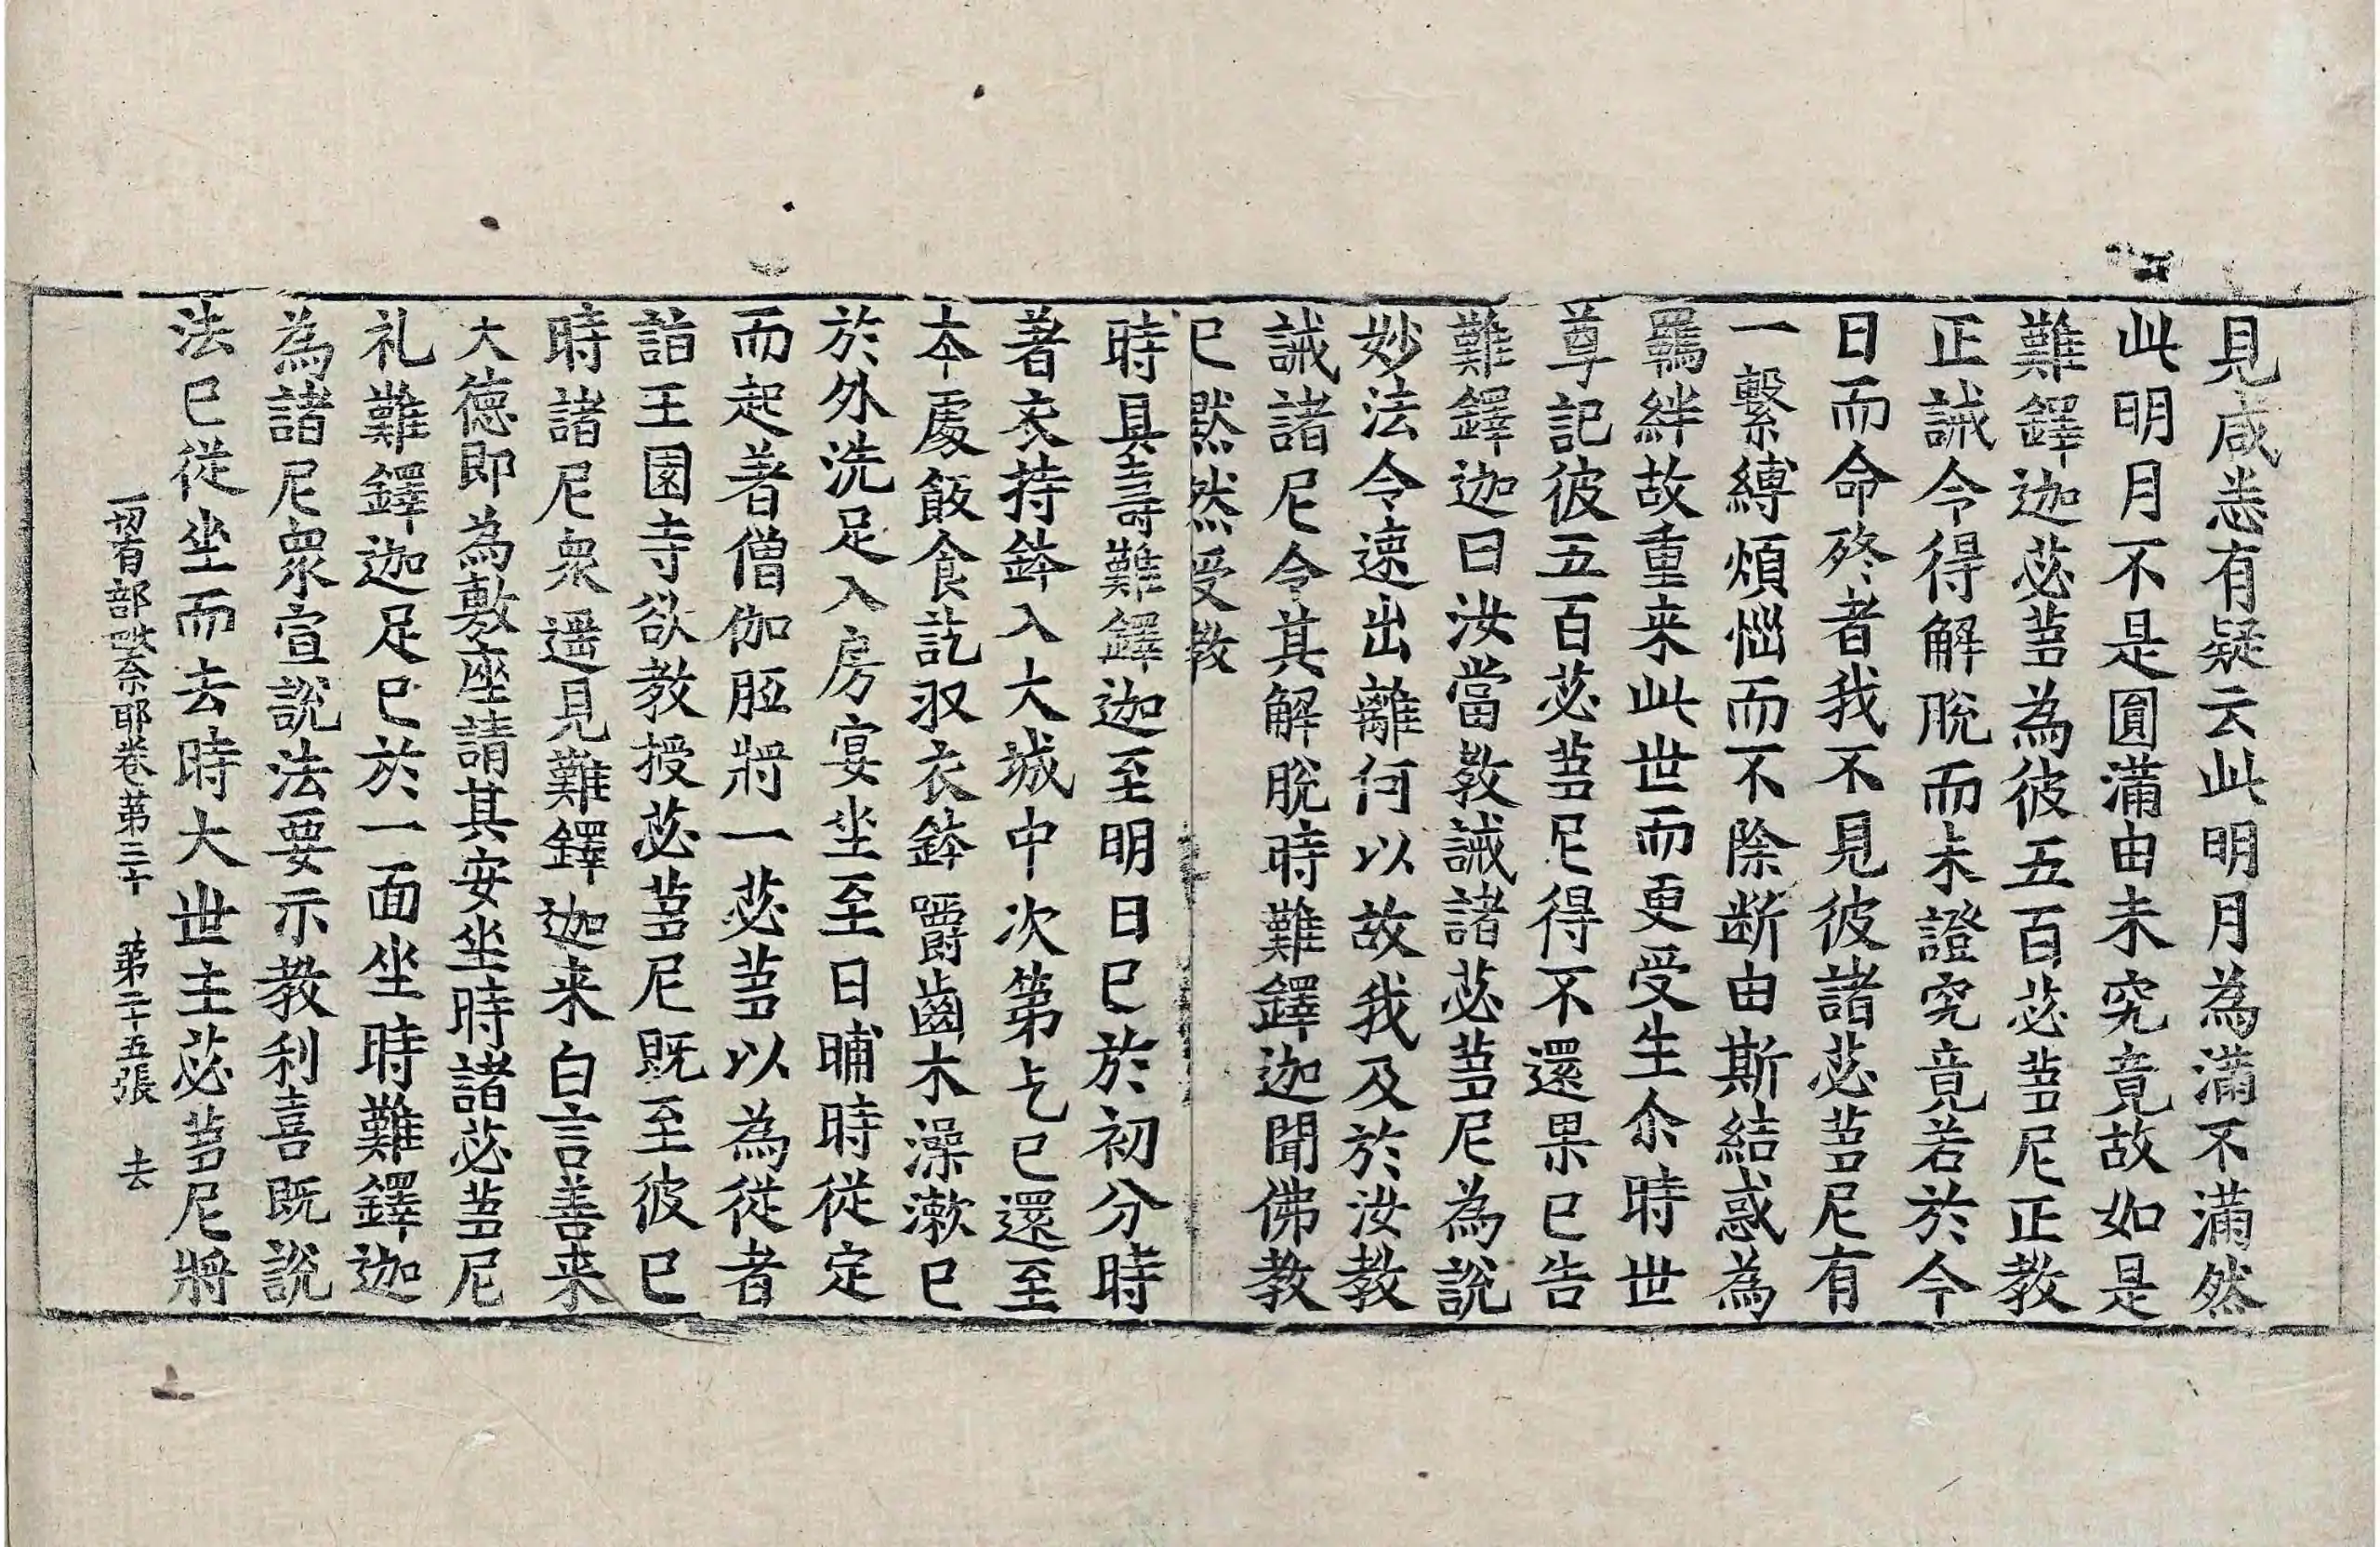 見咸悉有疑云此明月為滿不滿然
此明月不是圓滿由未究竟故如是
難鐸迦苾蒭為彼五百苾蒭尼正教
正誡令得解脫而未證究竟若於今
日而命終者我不見彼諸苾蒭尼有
一繫縛煩惱而不除断由斯結惑為
羈絆故重来此世而更受生尒時世
尊記彼五百苾蒭尼得不還果已告
難鐸迦曰汝當教誡諸苾蒭尼為說
妙法令速出離何以故我及於汝教
誡諸尼令其解脫時難鐸迦聞佛教
已黙然受教
時具壽難鐸迦至明日已於初分時
著衣持鉢入大城中次第乞已還至
本處飯食訖収衣鉢嚼齒木澡漱已
於外洗足入房宴坐至日晡時従定
而起著僧伽胝將一苾蒭以為従者
詣王園寺欲教授苾蒭尼既至彼已
時諸尼衆遥見難鐸迦来白言善来
大德即為敷座請其安坐時諸苾蒭尼
礼難鐸迦足已於一面坐時難鐸迦
為諸尼衆宣說法要示教利喜既說
法已従坐而去時大世主苾蒭尼將
一切有部毗奈耶卷第三十 第二十五張 去